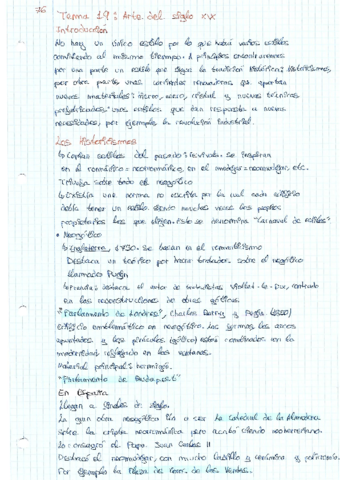 Tema 19: Arte del siglo XIX
Introducción
No hay un único estilo por lo que habrá varios estilos
conviviendo al mismo tiempo. A principios encontraremos
por una parte un estilo que sigue la tradición histórica; Historicismos,
por otra parte unas corrientes renovadoras que aportan
nuevos materiales: hierro, acero, cristal y nuevas técnicas
prefabricadas: usos estilos que dan respuesta a nuevas
necesidades, por ejemplo la revolución industrial.
Los Historicismos
Copian estilos del pasado: se inspiran
en el románico = neorrománico, en el mudéjar = neomudéjar, etc.
Triunfa sobre todo el neogótico
Existía una norma no escrita por la cual cada edificio
debía tener un estilo siendo muchas veces los propios
propietarios los que eligen. Esto se denomina "Carnaval de estilos"
• Neogótico
Inglaterra 1750. Se basan en el romanticismo
Destaca un teórico por hacer tratados sobre el neogótico
llamado Pugin
Francia: destaca el autor de Viollet-le-Duc, centrado
en las reconstrucciones de obras góticas.
"Parlamento de Londres", Charles Barry y Pugin
Edificio emblemático en neogótico. Las formas los arcos
apuntados y los pináculos (gótico) están combinados con la
modernidad reflejado en las ventanas.
Material principal: hormigón.
"Parlamento de Budapest"
En España
Llegan a finales de siglo.
La gran obra neogótica iba a ser la catedral de la Almudena
sobre la cripta neorrománica pero acabó siendo neoherreriano.
Lo consagró el Papa Juan Pablo II
Destaca el neomudéjar, con mucho ladrillo y cerámica y policromía.
Por ejemplo la Plaza de Toros de las Ventas.